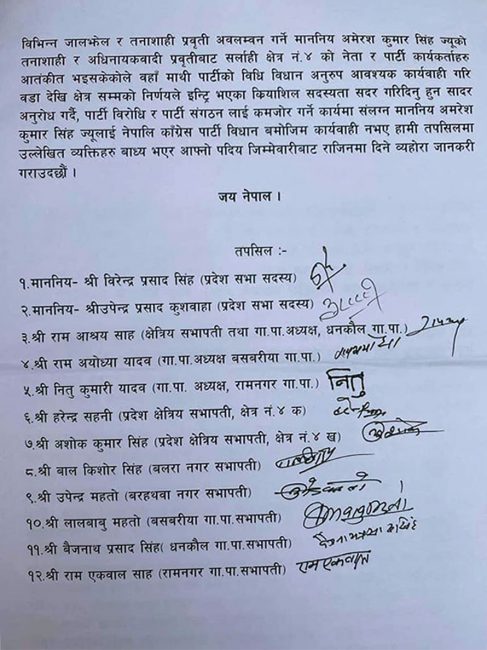 विभिन्न जालझेल र तनाशाही प्रवृती अवलम्वन गर्ने माननिय अमरेश कुमार सिंह ज्यूको
तनाशाही र अधिनायकवादी प्रवृतीबाट सर्लाही क्षेत्र नं.४ को नेता र पार्टी कार्यकर्ताहरु
आतंकीत भइसकेकोले वहाँ माथी पार्टीको विधि विधान अनुरुप आवश्यक कार्यवाही गरि
वडा देखि क्षेत्र सम्मको निर्णयले इन्ट्रि भएका कियाशिल सदस्यता सदर गरिदिनु हुन सादर
अनुरोध गर्दै, पार्टी विरोधि र पार्टी संगठन लाई कमजोर गर्ने कार्यमा संलग्न माननिय अमरेश
कुमार सिंह ज्यूलाई नेपालि काग्रेस पार्टी विधान बमोजिम कार्यवाही नभए हामी तपसिलमा
उल्लेखित व्यक्तिहरु बाध्य भएर आफ्नो पदिय जिम्मेवारीबाट राजिनमा दिने व्यहोरा जानकरी
गराउदछौं ।
जय नेपाल ।
तपसिल :-
१.माननिय- श्री विरेन्द्र प्रसाद सिंह (प्रदेश सभा सदस्य)
२.माननिय- श्रीउपेन्द्र प्रसाद कुशवाहा (प्रदेश सभा सदस्य)
३.श्री राम आश्रय साह (क्षेत्रिय सभापती तथा गा.पा.अध्यक्ष, धनकौल गा.पा.)
४.श्री राम अयोध्या यादव (गा.पा.अध्यक्ष बसबरीया गा.पा.)
५.श्री नितु कुमारी यादव (गा.पा. अध्यक्ष, रामनगर गा.पा.) नितु
६.श्री हरेन्द्र सहनी (प्रदेश क्षेत्रिय सभापती, क्षेत्र नं.४ क)
७.श्री अशोक कुमार सिंह (प्रदेश क्षेत्रिय सभापती, क्षेत्र नं.४ ख)
८.श्री बाल किशोर सिंह (बलरा नगर सभापती)
९.श्री उपेन्द्र महतो (बरहथवा नगर सभापती)
१०.श्री लालबाबु महतो (बसबरीया गा.पा.सभापती)
११.श्री बैजनाथ प्रसाद सिंह( धनकौल गा.पा.सभापती)
१२.श्री राम एकवाल साह (रामनगर गा.पा.सभापती) राम एकवाल